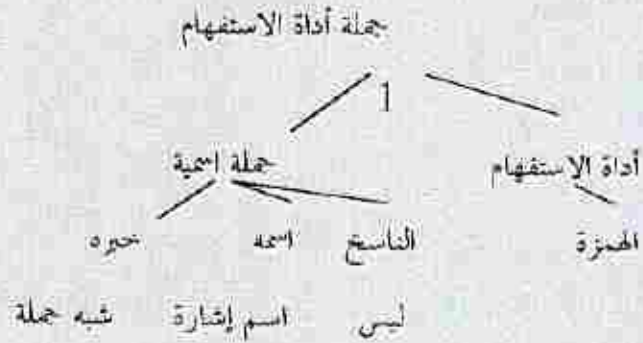 جملة أداة الاستفهام
1
أداة الاستفهام جملة اسمية
الهمزة الناسخ اسمه خبره
ليس اسم إشارة شبه جملة